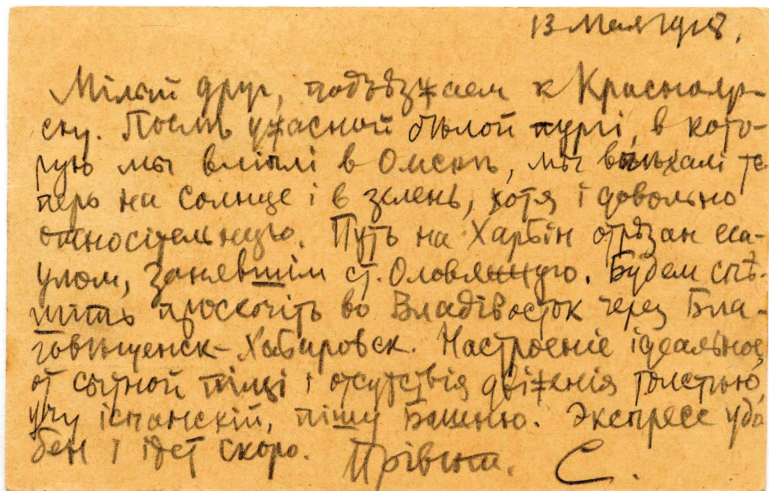 13 Мая 1918.
Мілый друг, подъѣзжаем к Краснояр-
ску. Послѣ ужасной бѣлой пургі, в кото-
рую мы влiплі в Омскѣ, мы выѣхалі те-
перь на солнце і в зелень, хотя і довольно
относітельную. Путь на Харбін отрѣзан еса-
улом, занявшім ст. Оловянную. Будем спѣ-
шить проскочіть во Владівосток через Бла-
говѣщенск-Хабаровск. Настроеніе ідеальное,
от сытной піщі і отсутствія двіженія толстѣю,
учу іспанскій, пішу Башню. Экспресс удо-
бен і ідет скоро. Прівѣт. С.